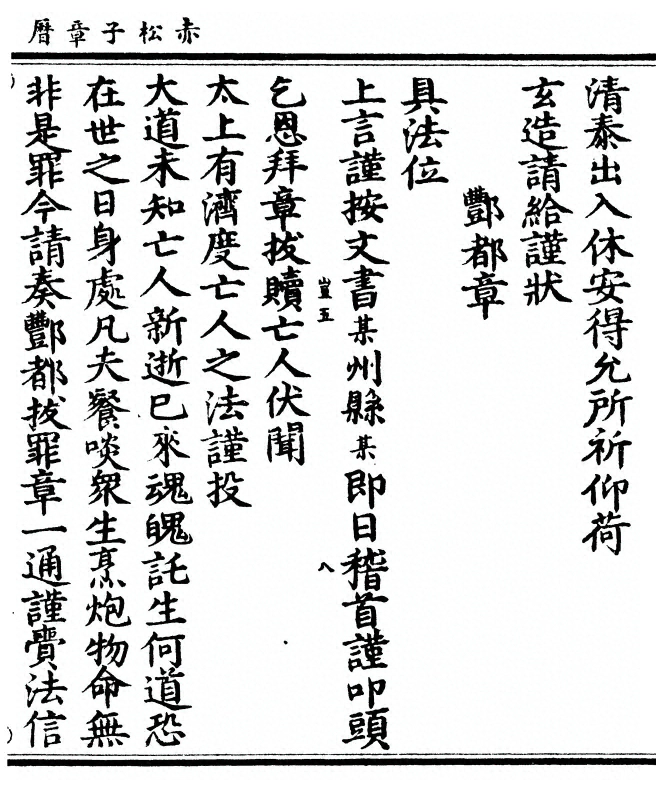 赤松子章曆
清泰出入休安得允所祈仰荷
玄造請給謹狀
酆都章
具法位
上言謹按文書某州縣某即日稽首謹叩頭
豈五
八
乞恩拜章拔贖亡人伏聞
太上有濟度亡人之法謹投
大道未知亡人新逝已來魂魄託生何道恐
在世之日身處凡夫餐啖衆生烹炮物命無
非是罪今請奏酆都拔罪章一通謹賫法信